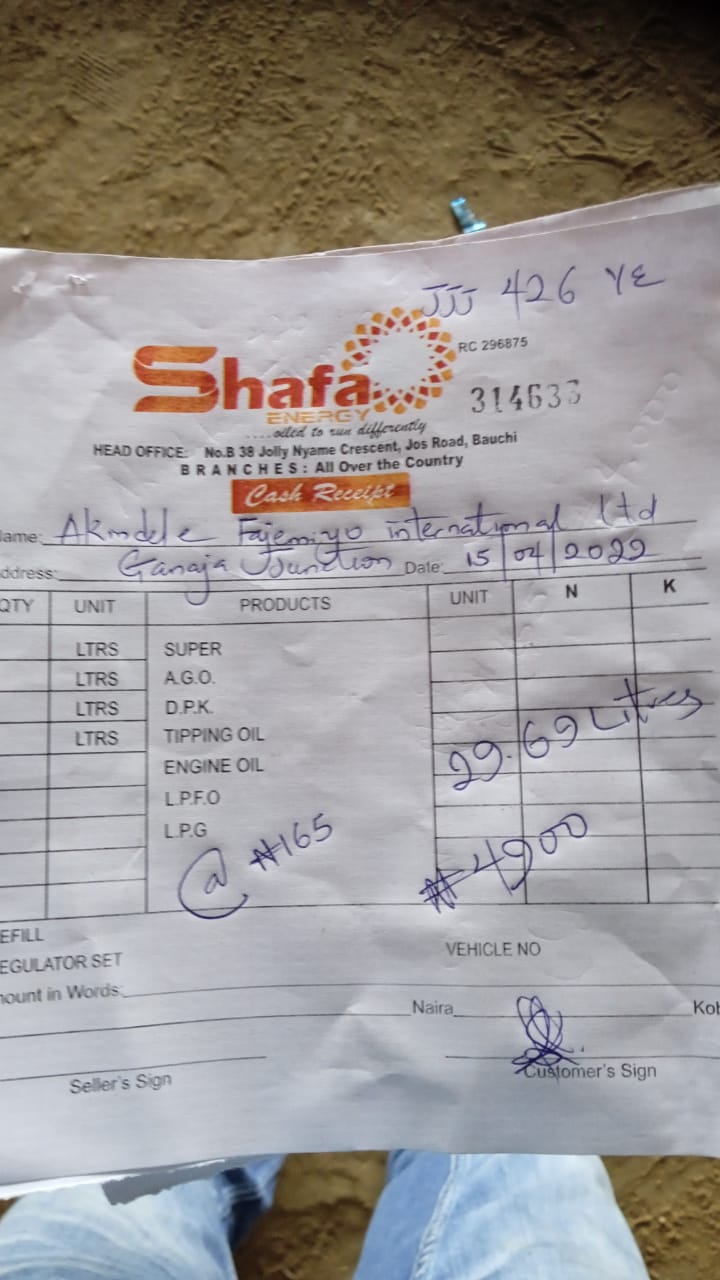 JJJ 426 YE
Shafa
RC 296875
ENERGY
314633
....oiled to run differently
HEAD OFFICE: No.B 38 Jolly Nyame Crescent, Jos Road, Bauchi
BRANCHES: All Over the Country
Cash Receipt
ame: Akindele Fajemiyo international Ltd
ddress: Ganaja Junction Date: 15/04/2022
QTY UNIT PRODUCTS UNIT N K
LTRS SUPER
LTRS A.G.O.
LTRS D.P.K.
LTRS TIPPING OIL
29.69 Litres
ENGINE OIL
L.P.F.O
L.P.G
@ ₦165 ₦4900
EFILL
EGULATOR SET VEHICLE NO
mount in Words:
Naira Kob
Seller's Sign Customer's Sign